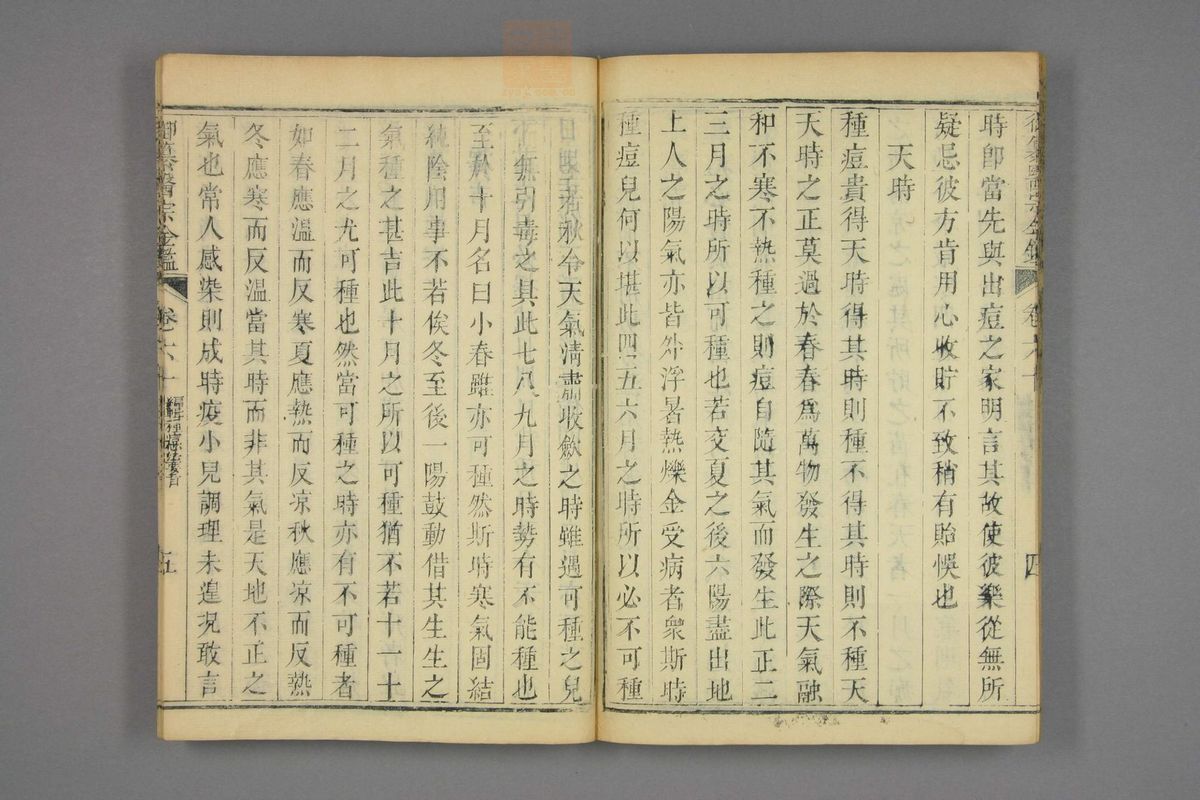 時卽當先與出痘之家明言其故使彼樂從無所
疑忌彼方肯用心收貯不致稍有貽悞也
天時
種痘貴得天時得其時則種不得其時則不種天
天時之正莫過於春春爲萬物發生之際天氣融
和不寒不熱種之則痘自隨其氣而發生此正二
三月之時所以可種也若交夏之後六陽盡出地
上人之陽氣亦皆外浮暑熱爍金受病者衆斯時
種痘兒何以堪此四五六月之時所以必不可種
秋令天氣清肅收斂之時雖遇可種之兒
無引毒之其此七八九月之時勢有不能種也
至於十月名曰小春雖亦可種然斯時寒氣固結
純陰用事不若俟冬至後一陽鼓動借其生生之
氣種之甚吉此十月之所以可種猶不若十一十
二月之尤可種也然當可種之時亦有不可種者
如春應溫而反寒夏應熱而反凉秋應凉而反熱
冬應寒而反溫當其時而非其氣是天地不正之
氣也常人感染則成時疫小兒調理未遑况敢言
御纂醫宗金鑑 卷六十 編輯種痘要旨 四
御纂醫宗金鑑 卷六十 編輯種痘要旨 五